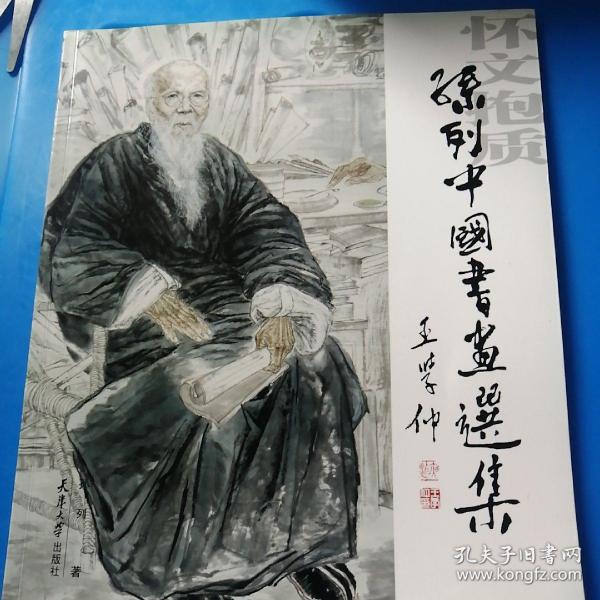 怀文抱质
孙列中國書畫選集
王学仲
孙列 著
天津大学出版社
孔夫子旧书网
www.kongfz.com